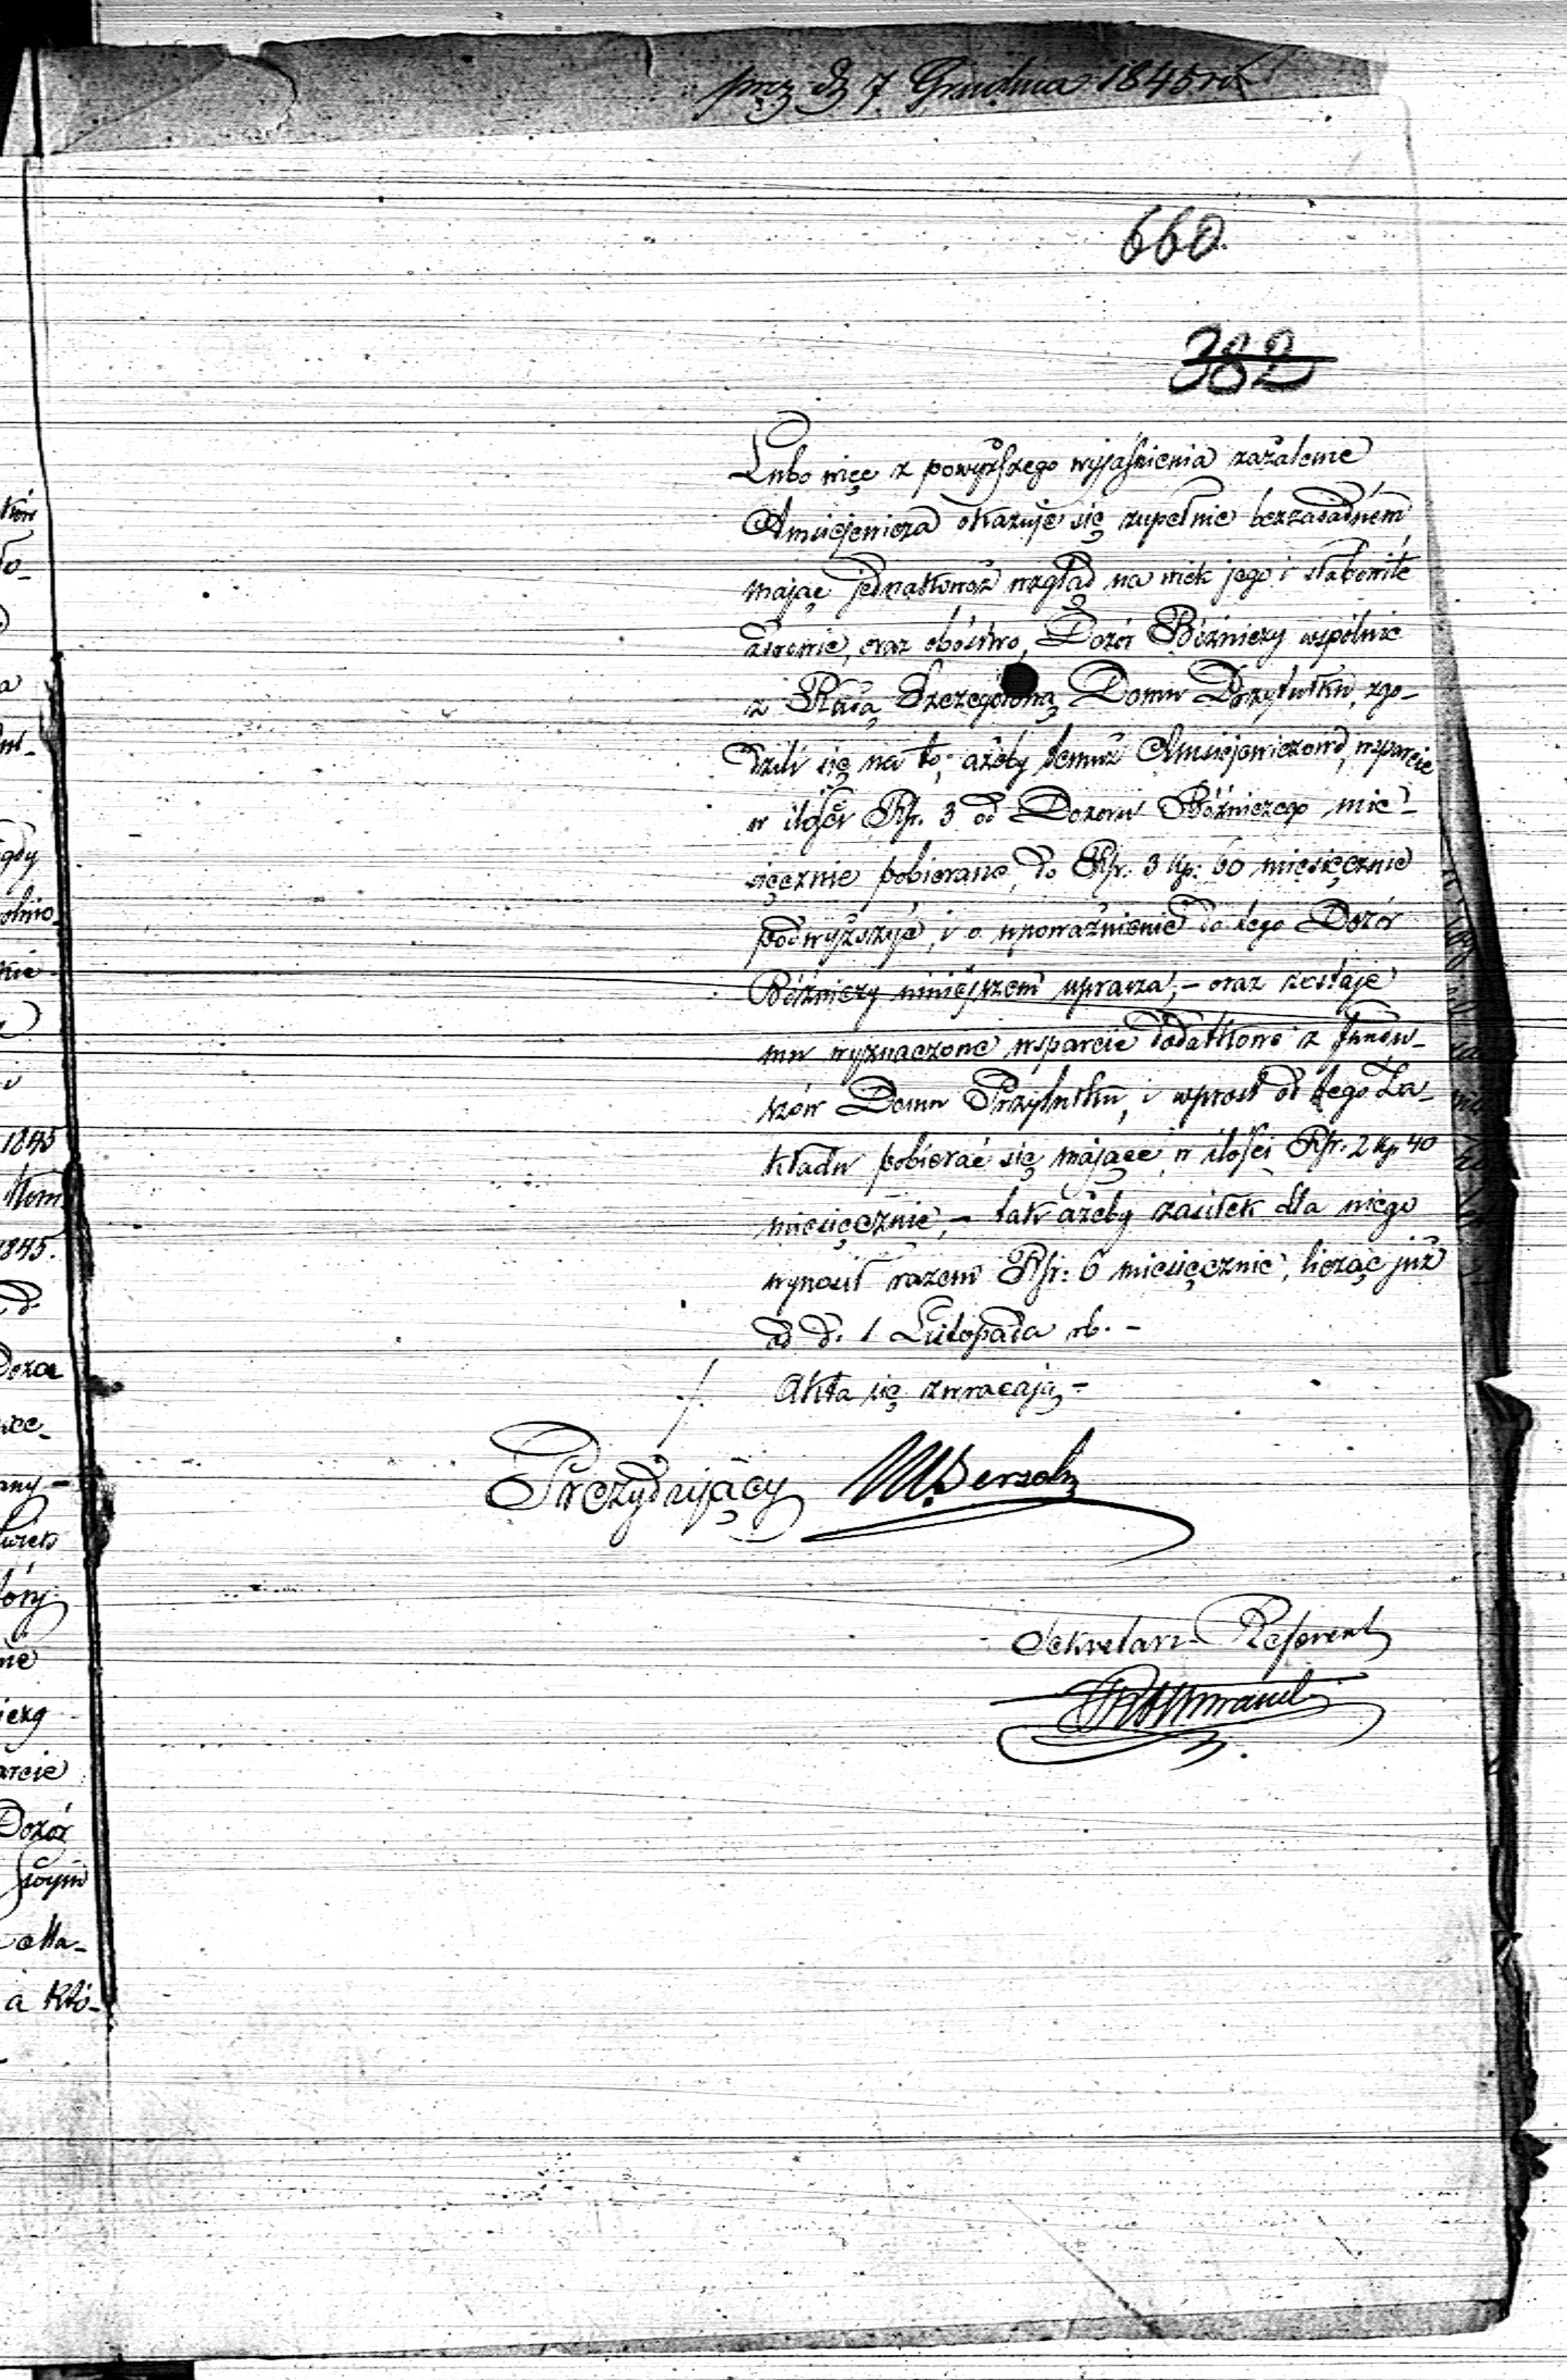 prez d 7 Grudnia 1845 rb
660.
382
Lubo więc z powyższego wyjaśnienia zażalenie
Amsiejewicza okazuje się zupełnie bezzasadnem,
mając jednakowoż wzgląd na wiek jego i słabowite
zdrowie, oraz ubóstwo, Dozór Bóżniczy wspólnie
z Radą Szczegółową Domu Przytułku, zgo-
dzili się na to; ażeby temuż Amsiejewiczowi, wsparcie
w ilości Rsr. 3 od Dozoru Bóżniczego mie-
sięcznie pobierane, do Rsr. 3 kp: 60 miesięcznie
podwyższyć, i o upoważnienie do tego Dozór
Bóżniczy niniejszem uprasza; – oraz zostaje
mu wyznaczone wsparcie dodatkowe z fundu-
szów Domu Przytułku, i wprost od tego Za-
kładu pobierać się mające w ilości Rsr. 2 kp. 40
miesięcznie, – tak ażeby zasiłek dla niego
wynosił razem Rsr: 6 miesięcznie, licząc już
od d. 1 Listopada rb. –
Akta się zwracają –
Prezydujący
Sekretarz Referent
gdy
1845
1845.
Dozór
swym
a któ-